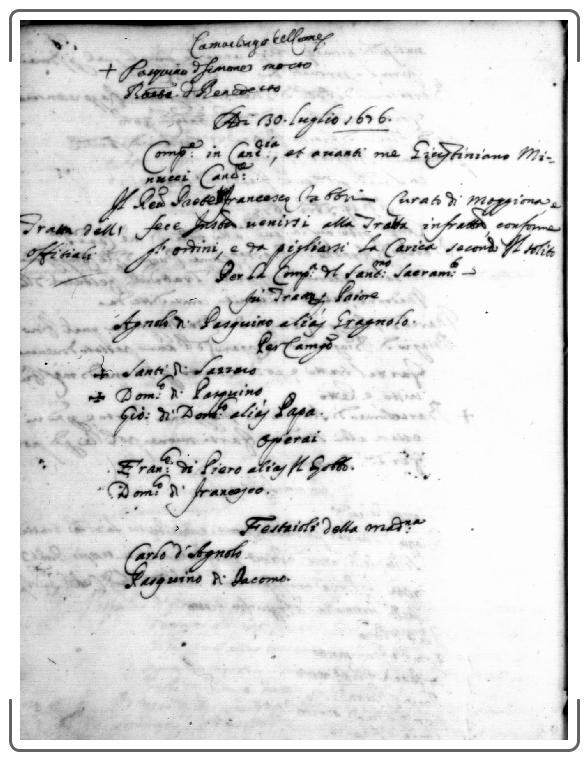 + Pasquino d Simone morto
d Benedetto
Adi 30. luglio 1676.
Comp.e in Canc.ia, et avanti me Giustiniano Mi-
nucci Canc.e
Il Rev. Francesco Fabbri Curato di Moggiona e
fece venirsi alla Tratta infratta conforme
Tratta delli
offitiali
ordini, e da pigliarsi la Carica secondo Il solito
Per la Comp.a del Sant.mo Sacram.to
fu Tratto
Agnolo di Pasquino alias Gragnolo.
Per Camgo
+ Santi di
+ Dom.co di Pasquino
Gio: di Dom.co alias Papa.
operai
Fran.co di Piero alias Il Gobbo.
Dom.co di francesco.
Festaioli della Mad.na
Carlo d'Agnolo
Pasquino di Jacomo.